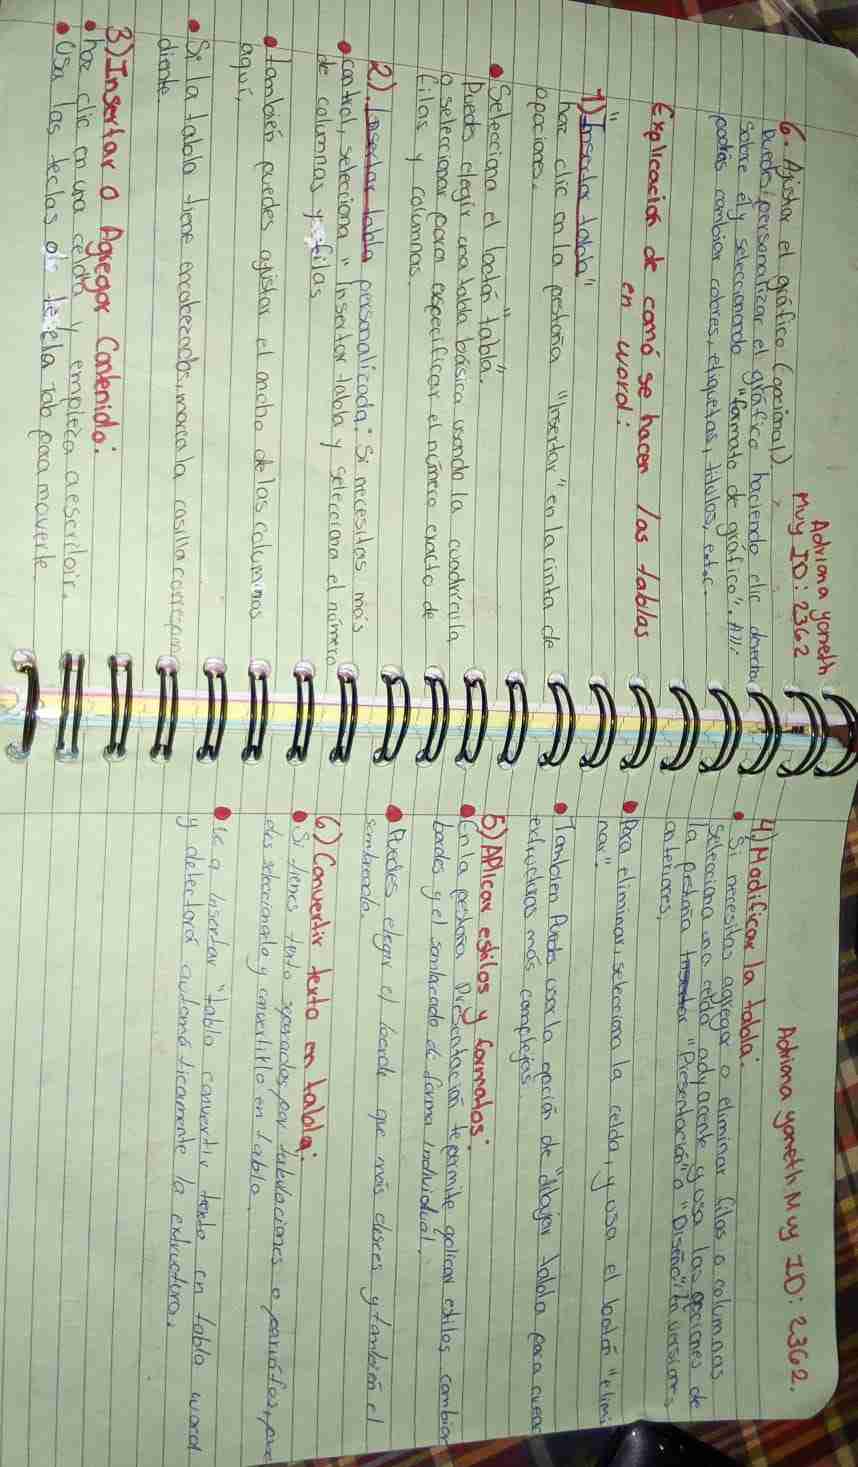 Adriana yaneth
Muy ID: 2362
6. Ajustar el gráfico (opcional).
puedes personalizar el gráfico haciendo clic derecho
sobre él y seleccionando "formato de gráfico". Allí
podrás cambiar colores, etiquetas, titulos, etc.
Explicación de comó se hacen las tablas
en word:
1) Insertar tabla"
haz clic en la pestaña "Insertar" en la cinta de
opciones.
• Selecciona el botón "tabla".
Puedes elegir una tabla básica usando la cuadrícula
o seleccionar para especificar el número exacto de
filas y columnas.
2). Insertar tabla personalizada: Si necesitas más
• control, selecciona "Insertar tabla y selecciona el número
de columnas y filas
• también puedes ajustar el ancho de las columnas
aquí,
• Si la tabla tiene encabezados, marca la casilla correspon
diente
3) Insertar o Agregar Contenido:
• haz clic en una celda y empieza a escribir.
• Usa las teclas de tecla Tab para moverte
Adriana yaneth Muy ID: 2362.
4) Modificar la tabla:
• Si necesitas agregar o eliminar filas o columnas
selecciona una celda adyacente y usa las opciones de
la pestaña "Presentación" o "Diseño" en versiones
anteriores,
• Para eliminar, selecciona la celda, y usa el botón "elimi
nar".
• Tambien Puedes usar la opción de "dibujar tabla para crear
estructuras más complejas
5) Aplicar estilos y formatos:
• En la pestaña Presentación te permite aplicar estilos, cambiar
bordes y el sombreado de forma individual.
• Puedes elegir el borde que más desees y también el
sombreado.
6) Convertir texto en tabla:
• Si tienes texto separados por tabulaciones o parrafos, pue
des seleccionarlo y convertirlo en tabla.
• Ve a Insertar "tabla convertir texto en tabla word
y detectará automáticamente la estructura.